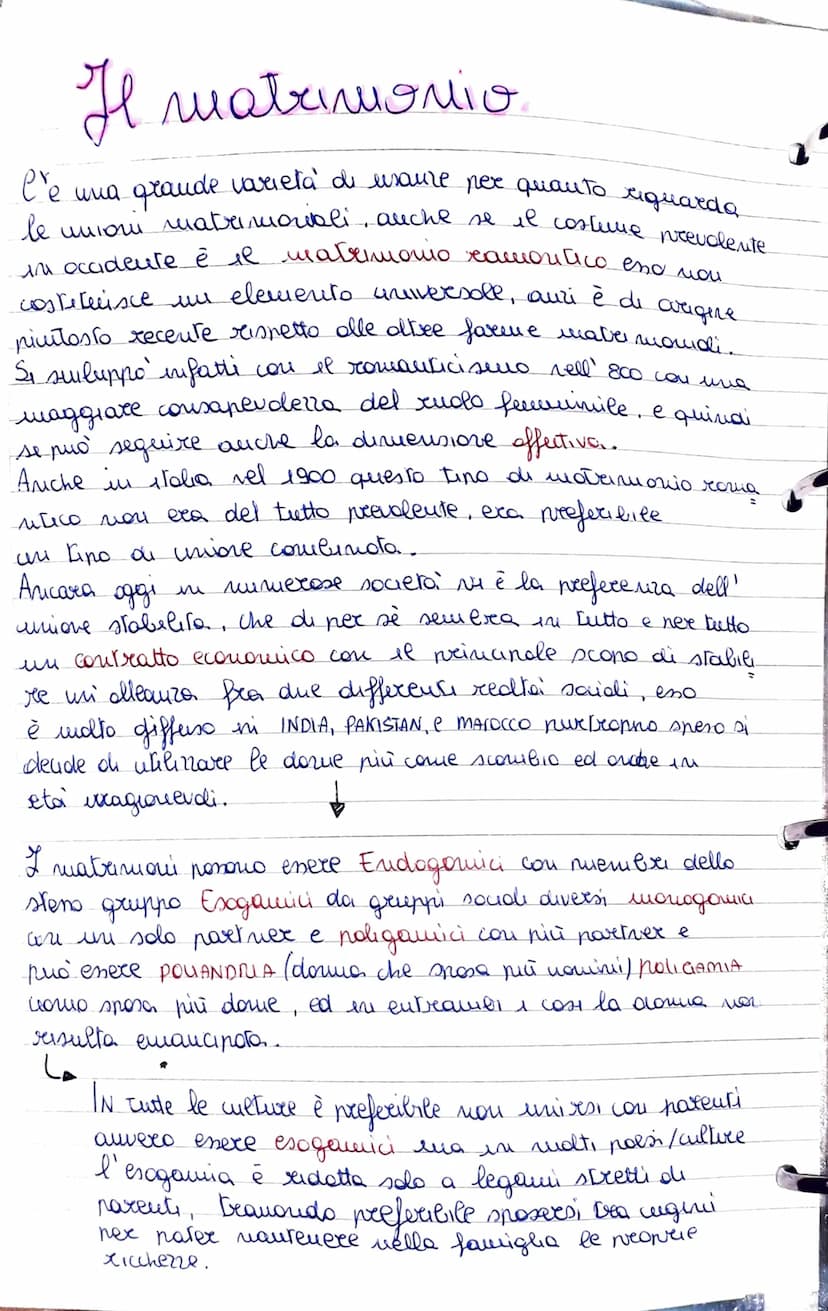 Il matrimonio
C'è una grande varietà di usanze per quanto riguarda
le unioni matrimoniali, anche se il costume prevalente
in occidente è il matrimonio romantico esso non
costituisce un elemento universale, anzi è di origine
piuttosto recente rispetto alle altre forme matrimoniali.
Si sviluppò infatti con il romanticismo nell' 800 con una
maggiore consapevolezza del ruolo femminile, e quindi
se può seguire anche la dimensione affettiva.
Anche in italia nel 1900 questo tipo di matrimonio roma
ntico non era del tutto prevalente, era preferibile
un tipo di unione combinata.
Ancora oggi in numerose società vi è la preferenza dell'
unione stabilita, che di per sè sembra in tutto e per tutto
un contratto economico con il principale scopo di stabili
re un' alleanza fra due differenti realtà sociali, esso
è molto diffuso in INDIA, PAKISTAN, e MAROCCO purtroppo spesso si
decide di utilizzare le donne più come scambio ed anche in
età irragionevoli.
I matrimoni possono essere Endogamici con membri dello
stesso gruppo Esogamici da gruppi sociali diversi monogamici
con un solo partner e poligamici con più partner e
può essere POLIANDRIA (donna che sposa più uomini) POLIGAMIA
uomo sposa più donne, ed in entrambi i casi la donna non
risulta emancipata.
IN tutte le culture è preferibile non unirsi con parenti
ovvero essere esogamici ma in molti paesi/culture
l'esogamia è ridotta solo a legami stretti di
parenti, trovando preferibile sposarsi tra cugini
per poter mantenere nella famiglia le proprie
ricchezze.